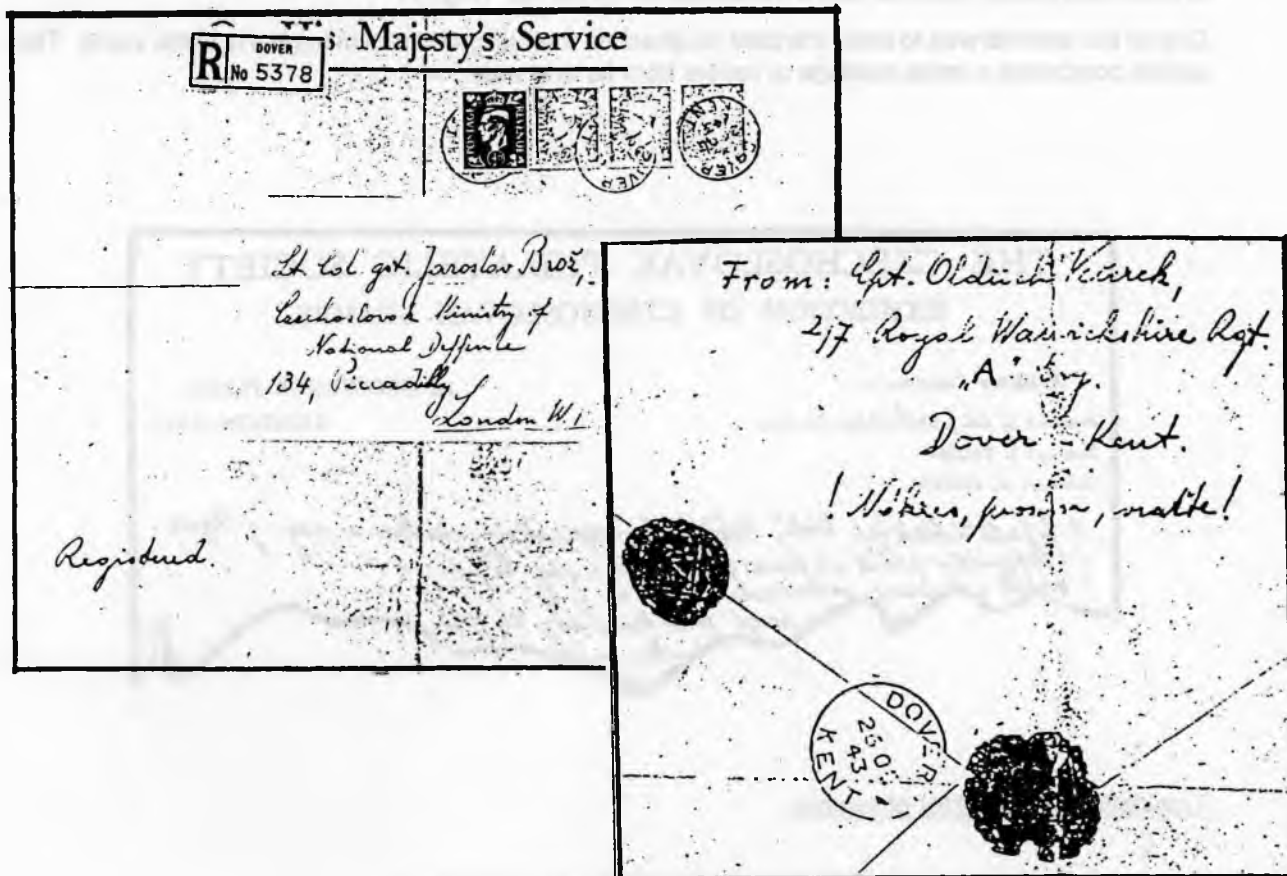 s Majesty's Service
R DOVER
No 5378
DOVER
Lt Col. gšt. Jaroslav Brož,
Ministry of
National Deffence
134, Piccadilly
London W1
Registered.
From: Cpt. Oldřich
2/7 Royal Warwickshire Rgt.
„A"
Dover – Kent.
DOVER
43
KENT